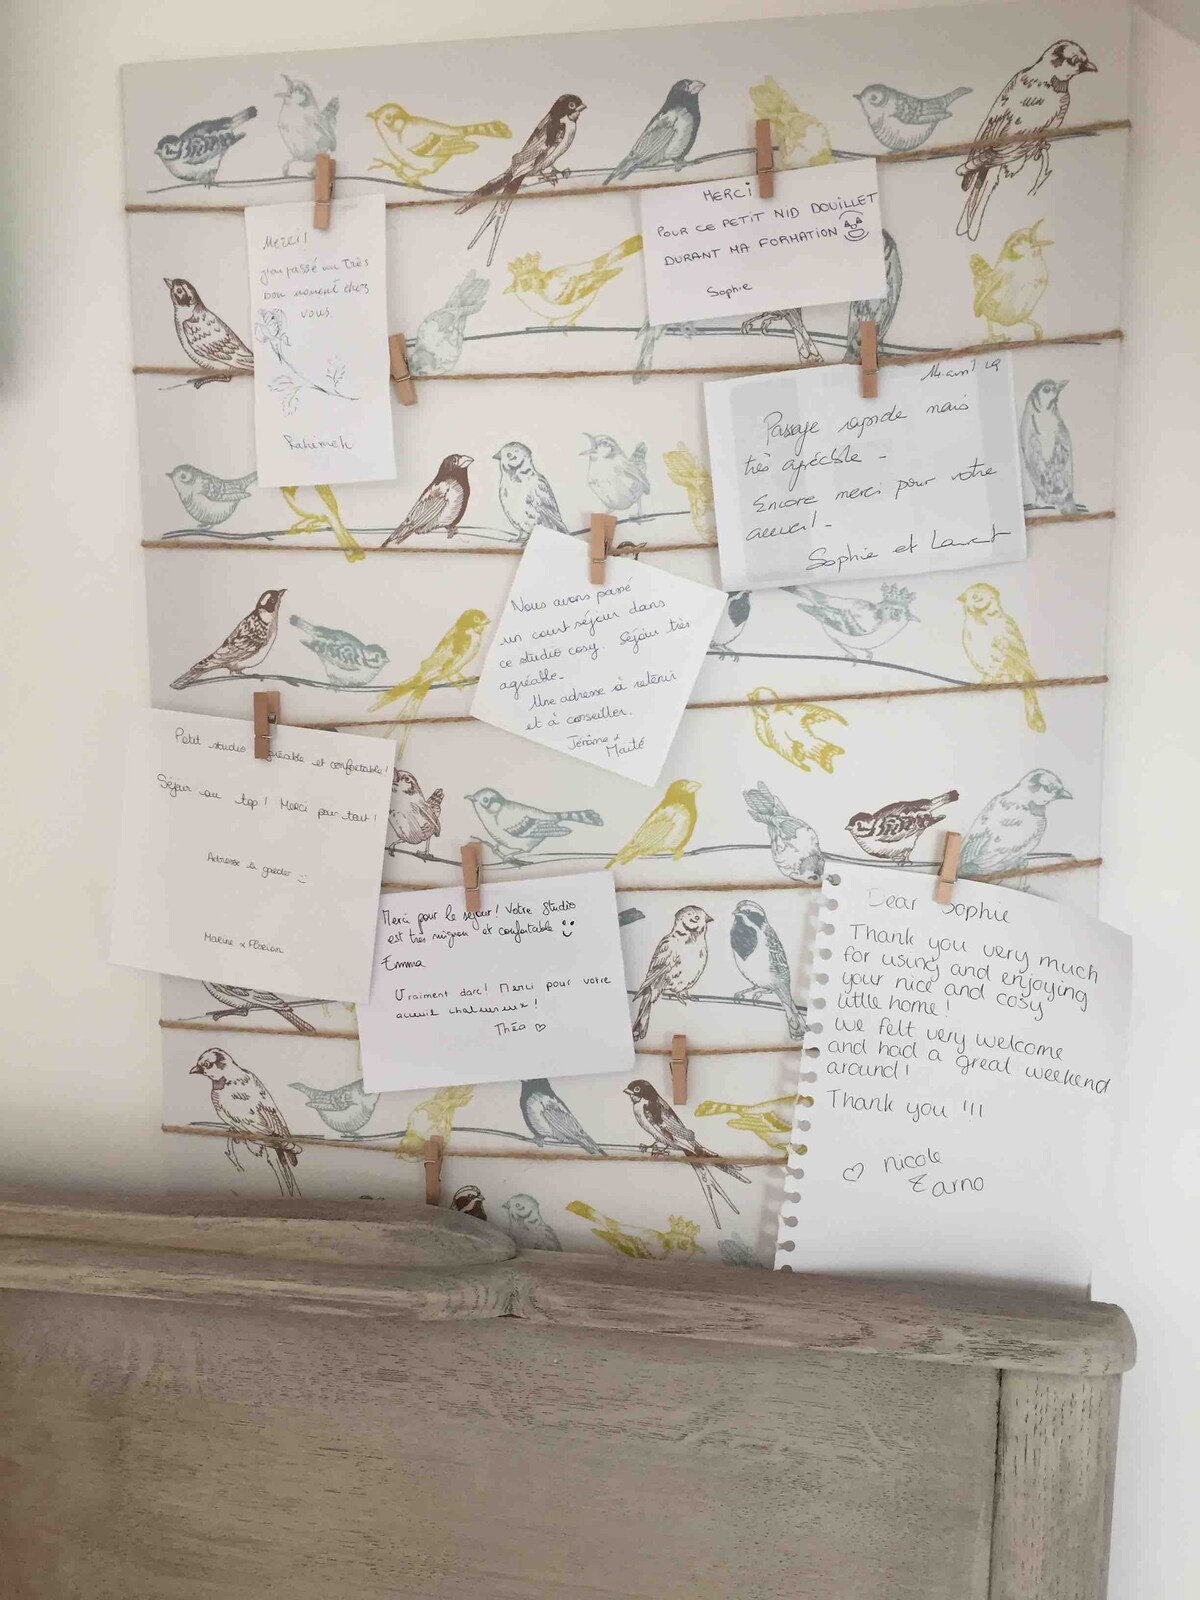 Merci!
j'ai passé un très
bon moment chez
vous.
Rahimeh
MERCI
POUR CE PETIT NID DOUILLET
DURANT MA FORMATION
Sophie
14 avril 19
Passage rapide mais
très agréable -
Encore merci pour votre
accueil -
Sophie et Laurent
Nous avons passé
un court séjour dans
ce studio cosy. Séjour très
agréable.
Une adresse à retenir
et à conseiller.
Jérôme &
Maité
Petit studio agréable et confortable!
Séjour au top! Merci pour tout!
Adresse à garder
Marine & Florian
Merci pour le séjour! Votre studio
est très mignon et confortable
Emma
Vraiment darc! Merci pour votre
accueil chaleureux!
Théo ♡
Dear Sophie
Thank you very much
for using and enjoying
your nice and cosy
little home!
We felt very welcome
and had a great weekend
around!
Thank you !!!
♡ Nicole
& arno